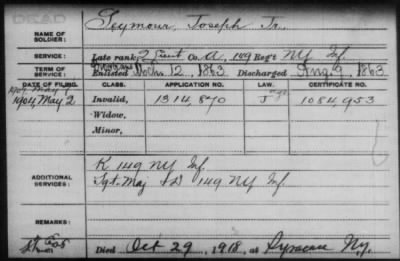 DEAD
NAME OF SOLDIER: Seymour, Joseph Jr.
SERVICE: Late rank, 2 Lieut Co. A, 149 Reg't NY Inf.
TERM OF SERVICE: Enlisted 12, 1863 Discharged Aug. 9, 1863
DATE OF FILING. CLASS. APPLICATION NO. LAW. CERTIFICATE NO.
1904, May 2 Invalid, 1314,870 1084,953
Widow,
Minor,
ADDITIONAL SERVICES: K 149 NY Inf.
Sgt. Maj + D 149 NY Inf.
REMARKS:
Died Oct 29, 1918, at Syracuse NY.